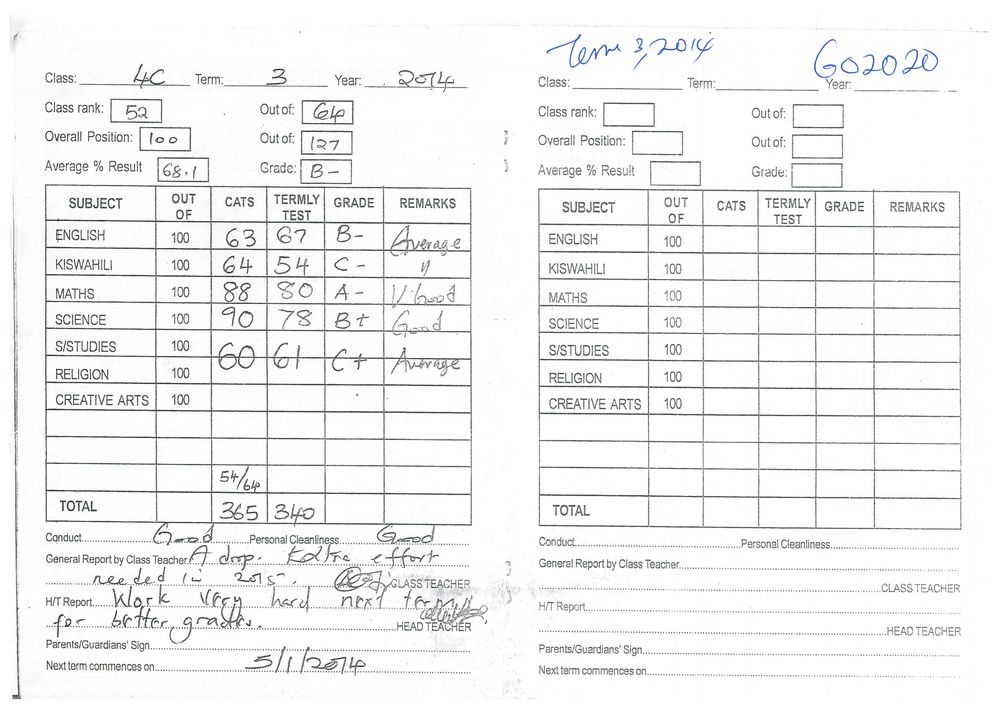 Class: 4C Term: 3 Year: 2014
Class rank: 52 Out of: 64
Overall Position: 100 Out of: 127
Average % Result 68.1 Grade: B-
SUBJECT OUT OF CATS TERMLY TEST GRADE REMARKS
ENGLISH 100 63 67 B- Average
KISWAHILI 100 64 54 C- "
MATHS 100 88 80 A- V. Good
SCIENCE 100 90 78 B+ Good
S/STUDIES 100
60 61 C+ Average
RELIGION 100
CREATIVE ARTS 100
54/64
TOTAL 365 340
Conduct Good Personal Cleanliness Good
General Report by Class Teacher A drop. Extra effort
needed in 2015. CLASS TEACHER
H/T Report Work very hard next term
for better grades. HEAD TEACHER
Parents/Guardians' Sign
Next term commences on 5/1/2014
Term 3, 2014 G02020
Class: Term: Year:
Class rank: Out of:
Overall Position: Out of:
Average % Result Grade:
SUBJECT OUT OF CATS TERMLY TEST GRADE REMARKS
ENGLISH 100
KISWAHILI 100
MATHS 100
SCIENCE 100
S/STUDIES 100
RELIGION 100
CREATIVE ARTS 100
TOTAL
Conduct Personal Cleanliness
General Report by Class Teacher
CLASS TEACHER
H/T Report
HEAD TEACHER
Parents/Guardians' Sign
Next term commences on